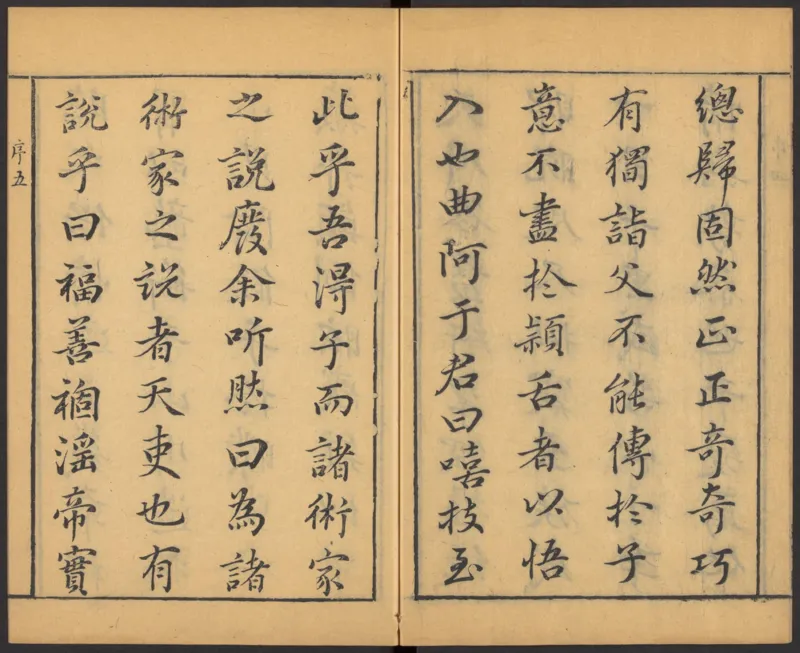 總歸固然正正奇奇巧
有獨詣父不能傳於子
意不盡於穎舌者以悟
入也曲阿于君曰嘻技至
此乎吾得子而諸術家
之說廢余听然曰為諸
術家之說者天吏也有
說乎曰福善禍淫帝實
序五